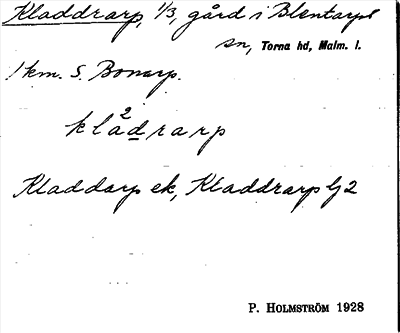 Kladdrarp, 1/3, gård i Blentarps
sn, Torna hd, Malm. l.
1 km. S. Bonarp.
kla²drarp
Kladdarp ek, Kladdrarp Gj 2
P. HOLMSTRÖM 1928